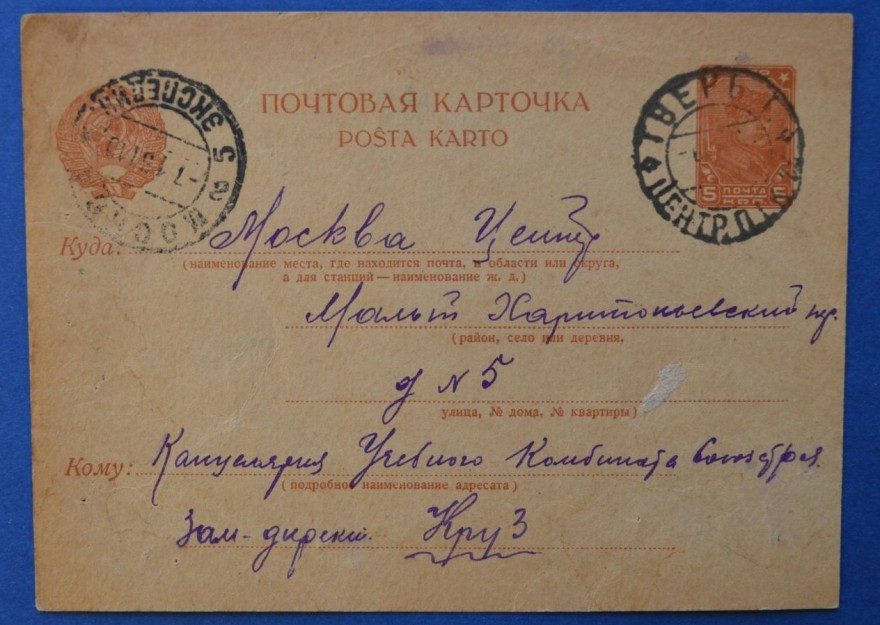 ПОЧТОВАЯ КАРТОЧКА
POŜTA KARTO
ЭКСПЕДИЦ.
МОСКВА
ТВЕРЬ
ЦЕНТР. П
5 ПОЧТА 5
Куда: Москва Центр
(наименование места, где находится почта, и области или округа,
а для станций — наименование ж. д.)
Малый Харитоньевский пер.
(район, село или деревня,
д N 5
улица, № дома, № квартиры)
Кому: Канцелярия Учебного Комбината Союзстроя.
(подробное наименование адресата)
Зам-директ. Круз